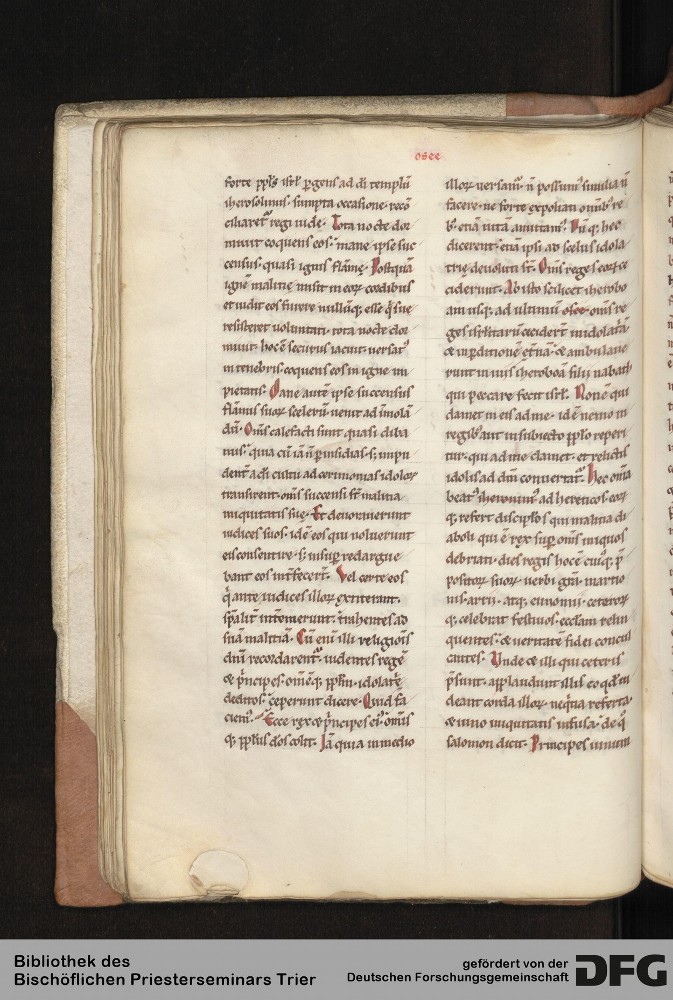 osee
forte ppl̄s isrł p̄gens ad dī templū
iherosolimis · sumpta occasione · recō
ciliaretᷣ regi iudę · Tota nocte dor
miuit coquens eos · mane ipse suc
census · quasi ignis flāmę · Postquā
ignē malitię misit in eoꝝ cordibus
et uidit eos furere nullūq; esse q̇ sue
resisteret uoluntati · tota nocte dor
miuit · hoc ē securus iacuit · uersatᷣ
in tenebris · coquens eos in igne im
pietatis · Mane autē ipse succensus
flāmis suoꝝ scelerū · uenit ad īmolā
dū · Om̄s calefacti sunt quasi cliba
nus · quia cū iā n̄ p̄ insidias · s; inpu
dent̄ a dī cultu ad cerimonias idoloꝝ
transirent · om̄s succensi st̄ malitia
iniquitatis suę · Et deuorauerunt
iudices suos · id ē eos qui noluerunt
eis consentire · s; insup redargue
bant eos int̄fecerт̄ · Vel certe eos
q̇ ante iudices illoꝝ extiterant ·
sp̄alit̄ intemerunt · trahentes ad
suā malitiā · Cū enī illi religiōis
dn̄i recordarentᷣ · uidentes regē
& p̄ncipes · omēq; pplm̄ · idolatrię
deditos · ceperunt dicere · Quid fa
ciemᷣ · Ecce rex & p̄ncipes eiᷣ · omīs
q; ppłus dōs colit · Iā quia in medio
illoꝝ uersamᷣ · n̄ possumᷣ similia n̄
facere · ne forte expoliati omībᷣ re
bᷣ · etiā uitā amittamᷣ · Dū q; hec
dicerent · etiā ipsi ad scelus idola
trię deuoluti st̄ · Om̄s reges eoꝝ ce
ciderunt · Ab isto scilicet iherobo
am usq; ad ultimū osee · om̄s re
ges isrłitarū cecidert̄ in idolat̄a
& in perditionē et̄nā · & ambulaue
runt in uiis iheroboā filii nabath
qui peccare fecit isrł · Non ē qui
clamet in eis ad me · id ē nemo in
regibᷣ aut in subiecto pplo reperi
tur · qui ad me clamet · et relictis
idolis ad dm̄ conuertatᷣ · Hec om̄ia
beatᷣ iheronimᷣ ad hereticos · eoꝝ
q; refert discipłos qui malitia di
aboli qui ē rex sup om̄s iniquos
debriati · dies regis hoc ē cuiq; p̄
positoꝝ suoꝝ · uerbi gr̄a · martio
nis · arrii · atq; eunomii · ceteroꝝ
q; celebrāt festiuos · ecclam relin
quentes · & ueritatē fidei concul
cantes · Vnde & illi qui ceteris
p̄sunt · applaudunt illis eo qd̄ in
cleant corda illoꝝ · neq̄tia referta ·
& immo iniquitatis infusa · de q̇
salomon dicit · Principes uinum
Bibliothek des
Bischöflichen Priesterseminars Trier
gefördert von der
Deutschen Forschungsgemeinschaft
DFG